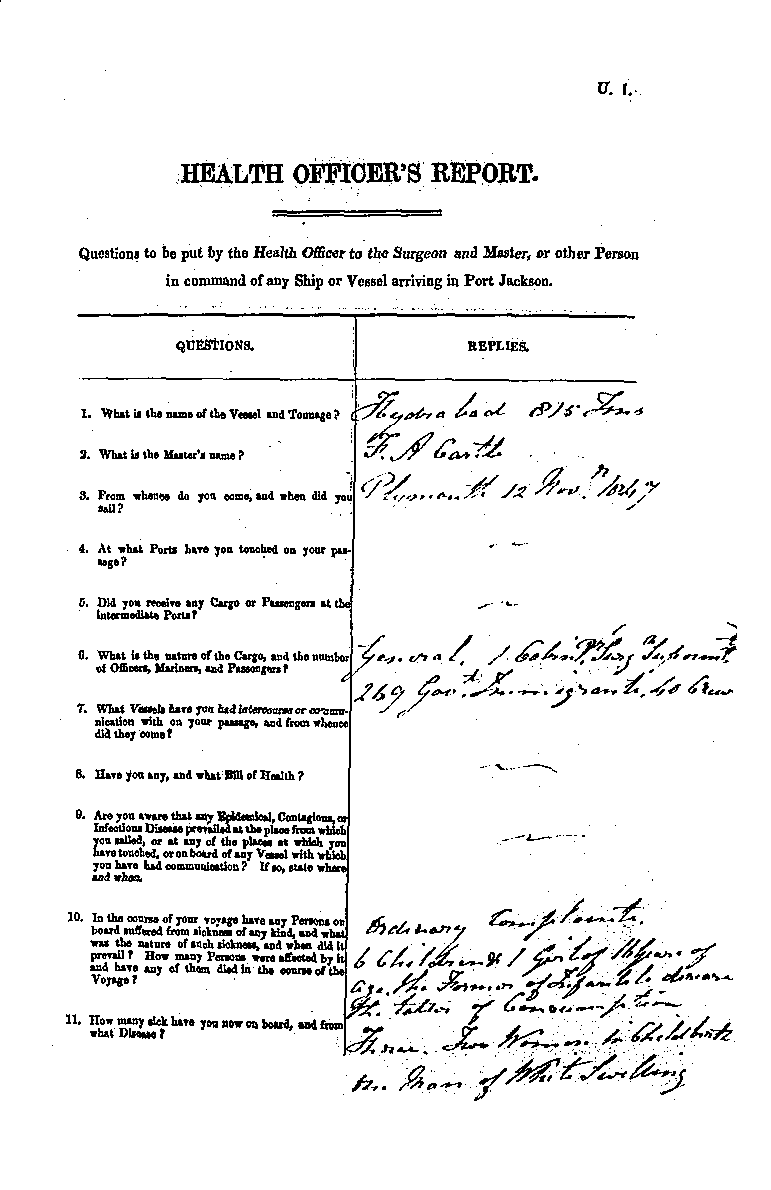 U. 1.
HEALTH OFFICER'S REPORT.
Questions to be put by the Health Officer to the Surgeon and Master, or other Person
in command of any Ship or Vessel arriving in Port Jackson.
QUESTIONS.
REPLIES.
1. What is the name of the Vessel and Tonnage?
Hydrabad 815 Tons
2. What is the Master's name?
F. A Castle
3. From whence do you come, and when did you
sail?
Plymouth 12 Novr. 1847
4. At what Ports have you touched on your pas-
sage?
5. Did you receive any Cargo or Passengers at the
intermediate Ports?
6. What is the nature of the Cargo, and the number
of Officers, Mariners, and Passengers?
General, 1 Cabin Surgn Superintt
269 Govt. Immigrants, 40 Crew
7. What Vessels have you had intercourse or commu-
nication with on your passage, and from whence
did they come?
8. Have you any, and what Bill of Health?
9. Are you aware that any Epidemical, Contagious, or
Infectious Disease prevailed at the place from which
you sailed, or at any of the places at which you
have touched, or on board of any Vessel with which
you have had communication? If so, state where
and when.
10. In the course of your voyage have any Persons on
board suffered from sickness of any kind, and what
was the nature of such sickness, and when did it
prevail? How many Persons were affected by it
and have any of them died in the course of the
Voyage?
Ordinary Complaints.
6 Children & 1 Girl of 14 years of
age. The Former of Infantile disease
the latter of Consumption
11. How many sick have you now on board, and from
what Disease?
Three. Two Women in Childbirth
One Man of White Swelling